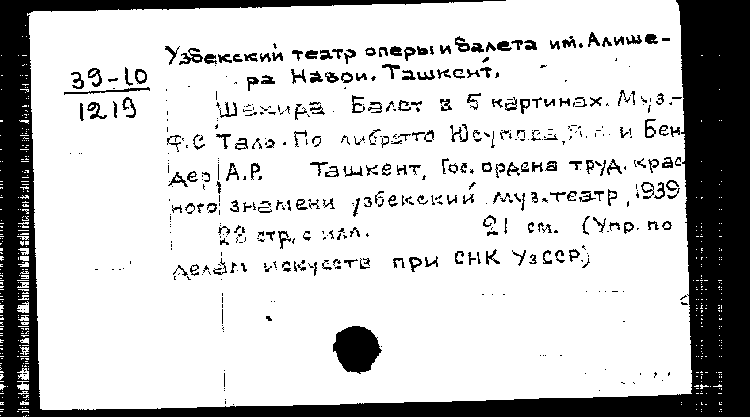 Узбекский театр оперы и балета им. Алише-
39-10
ра Навои. Ташкент.
1219
Шахида. Балет в 5 картинах. Муз.
Ф.С. Тало. По либретто Юсупова, и Бен
дер А.Р. Ташкент, Гос. ордена труд. крас
ного знамени узбекский муз. театр, 1939
28 стр. с илл. 21 см. (Упр. по
делам искусств при СНК УзССР)